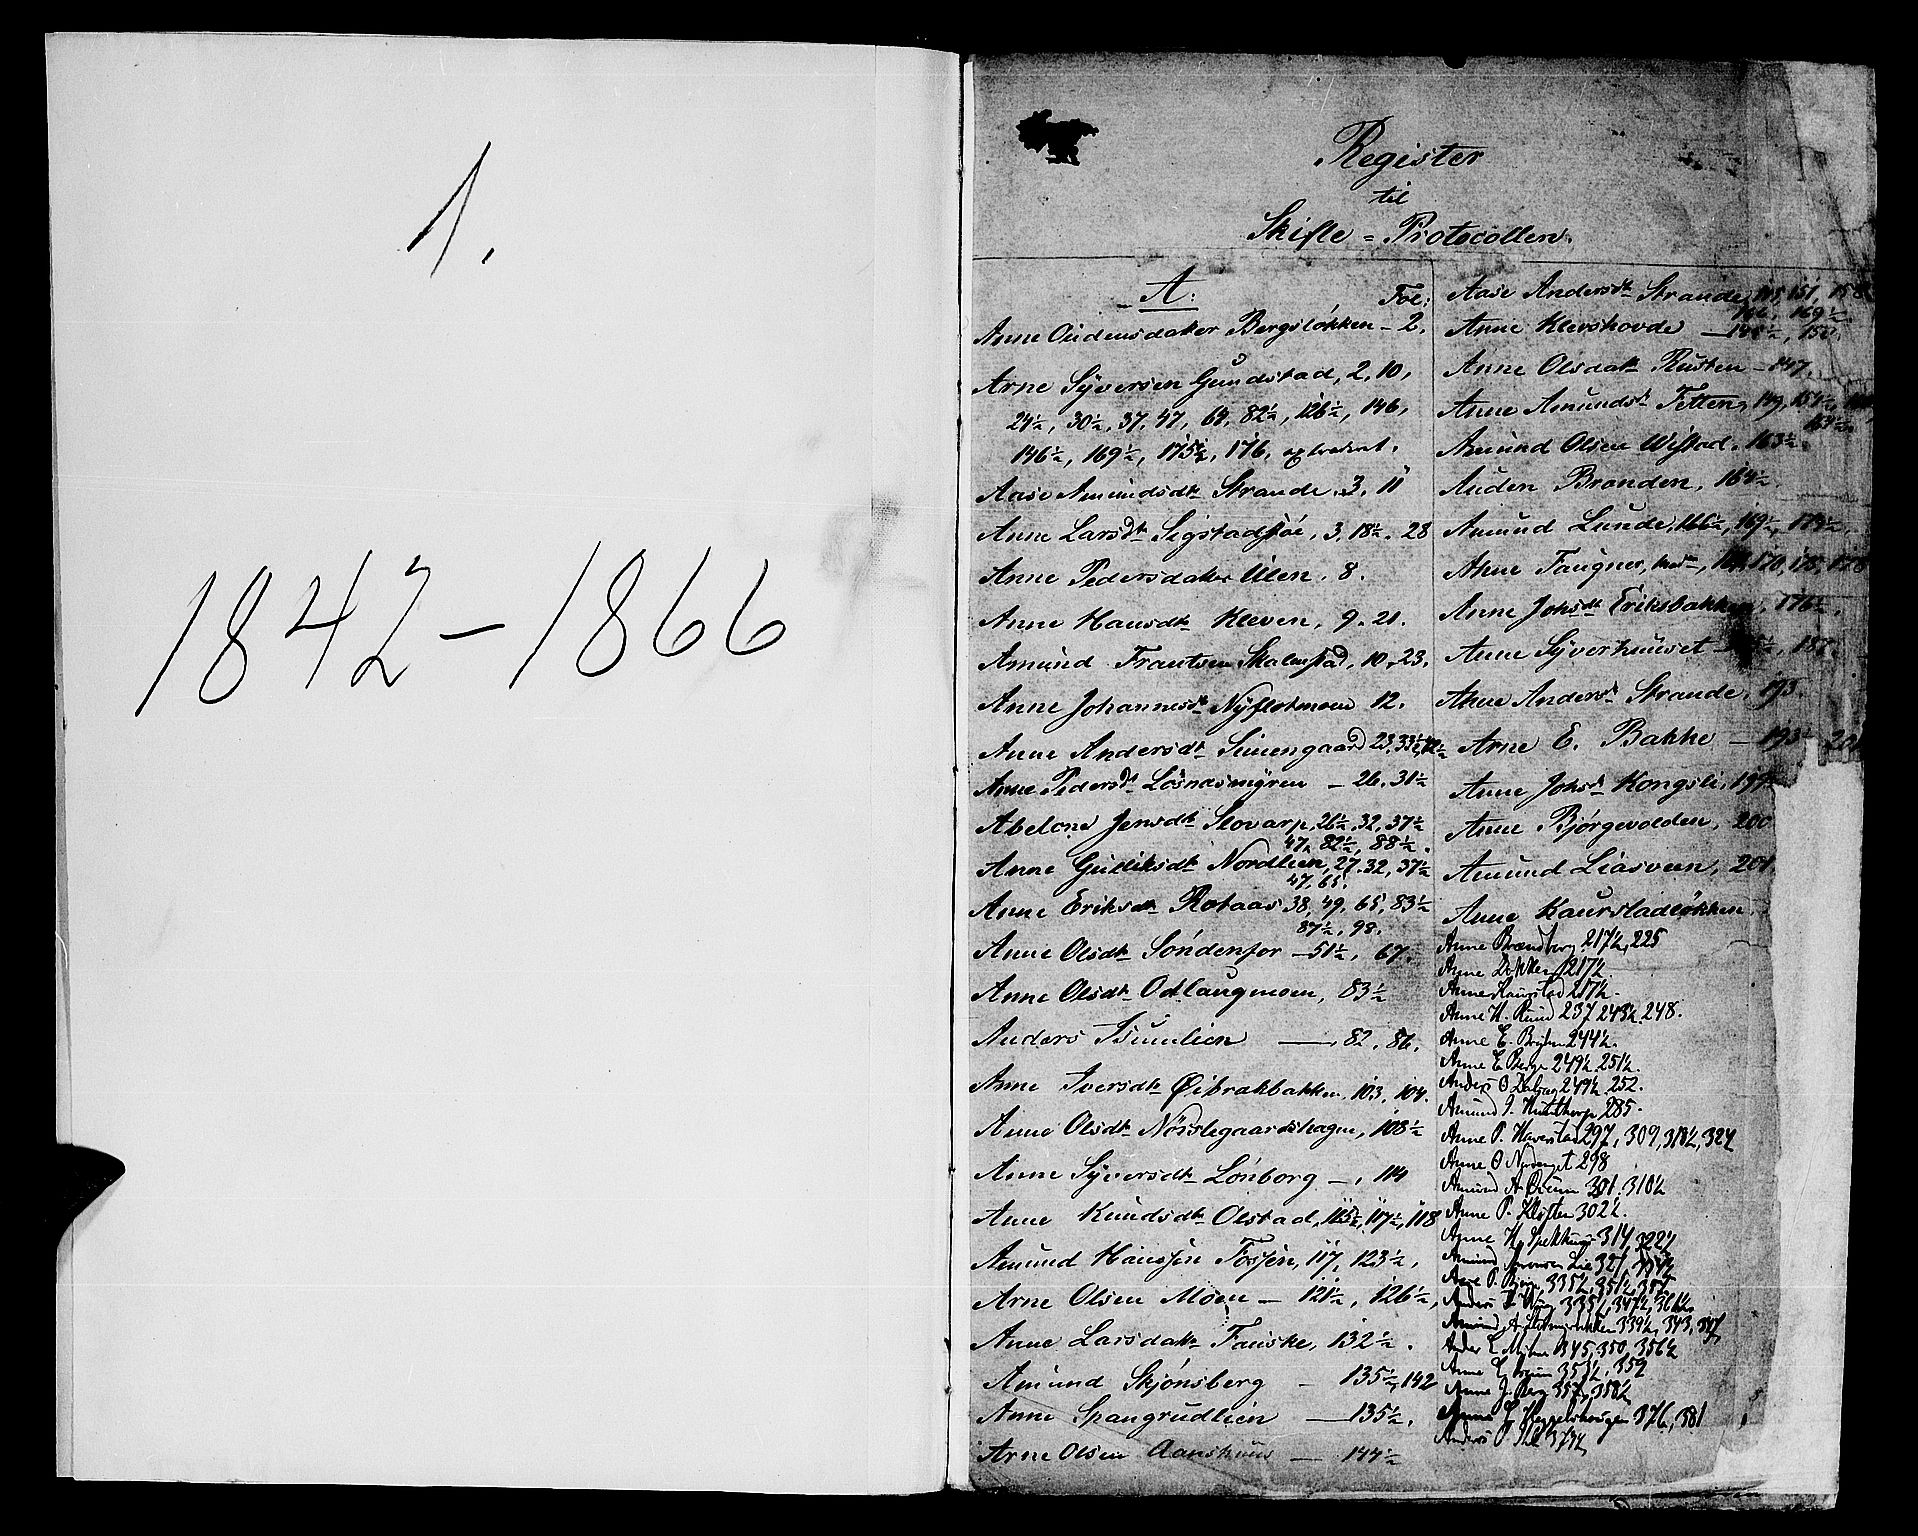 1.
1842-1866
Register
til
Skifte=Protocollen.
A: Fol:
Anne Oudensdatter Bergsløkken - 2.
Arne Syversen Gundstad, 2, 10,
24½, 30½, 37, 47, 64, 82½, 126½, 146,
146½, 169½, 175½, 176, extraderet.
Aase Amundsdt Strande, 3, 11
Anne Larsdt Sigstadstøe, 3, 18½, 28
Anne Pedersdatter Ulen, 8.
Anne Hansdt Kleven, 9. 21.
Amund Frantsen Skalmstad, 10, 23.
Anne Johannesdt Nyflotmoen 12.
Anne Andersdt Simengaard 23, 33½,
Anne Pedersdt Løsnesmyren - 26, 31½
Abelone Jensdt Slovarp, 26½, 32, 37½
47, 82½, 88½.
Anne Gulliksdt Nordlien, 27. 32, 37½
47, 65.
Anne Eriksdt Rotaas 38, 49, 65, 83½
87½, 98.
Anne Olsdt Søndenfor - 51½, 67.
Anne Olsdt Odlaugmoen, 83½
Anders Tsumlien — 82, 86.
Anne Iversdt Øibrakbakken, 103, 104.
Anne Olsdt Nørstegaardshagen, 108½
Anne Syversdt Lønborg -, 114
Anne Knudsdt Olstad, 115½, 117½, 118
Amund Hanssen Fossen, 117, 123½,
Arne Olsen Moen - 121½, 126½,
Anne Larsdatt Fauske, 132½.
Amund Skjønsberg - 135½, 142
Anne Spangrudlien — 135½,
Arne Olsen Aanshuus — 144½
Aase Andersdt Strande, 145, 151, 158
166, 169½
Anne Klevshovde — 146½, 150.
Anne Olsdatt Rusten - 147.
Anne Amundsdt Fetten, 149, 154½,
164½.
Amund Olsen Wistad. 163½.
Auden Brænden, 164½.
Amund Lunde, 166½, 169½, 173½,
Anne Faugner, 170, 175, 178
Anne Johsdt Eriksbakken, 176½.
Anne Syverhuuset 187.
Anne Andersdt Strande, 193.
Arne E. Bakke — 193½ 201
Anne Johsdt Kongsli, 199
Anne Bjørgevolden, 200
Amund Liasveen, 201,
Anne Kaurstadløkken
Anne Brændberg 217½, 225
Anne Løkken 217½.
Anne Kaurstad 217½.
Anne H. Ruud 237 243½. 248.
Anne E. 244½.
Anne E. Berge 249½. 251½
Anders O 249½. 252.
Amund J. 285.
Anne P. Haverstad 297, 309, 318½, 324
Anne O Nordenget 298
Amund A. 301. 310½
Anne P. Kløften 302½.
Anne H. 314, 322½
Amund 327
Anne P. Bjørge 335½, 351½, 357
Anders 335½, 347½, 361½.
Amund A. 339½, 343, 347
Anders E. Moen 345, 350, 356½
Anne 353½, 359
Anne J. Berg 357, 358½
Anne L. Heggelshaugen 376, 381
Anders P. Lie 373½